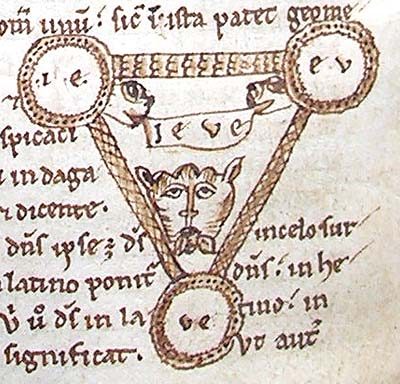 unu: sic ista patet geome
.i.e. e v
ieve
spicaci
in daga
dicente.
dns ipse ds in celo sur
latino ponit dns: in he
ds in la ve tino: in
significat. ut aut